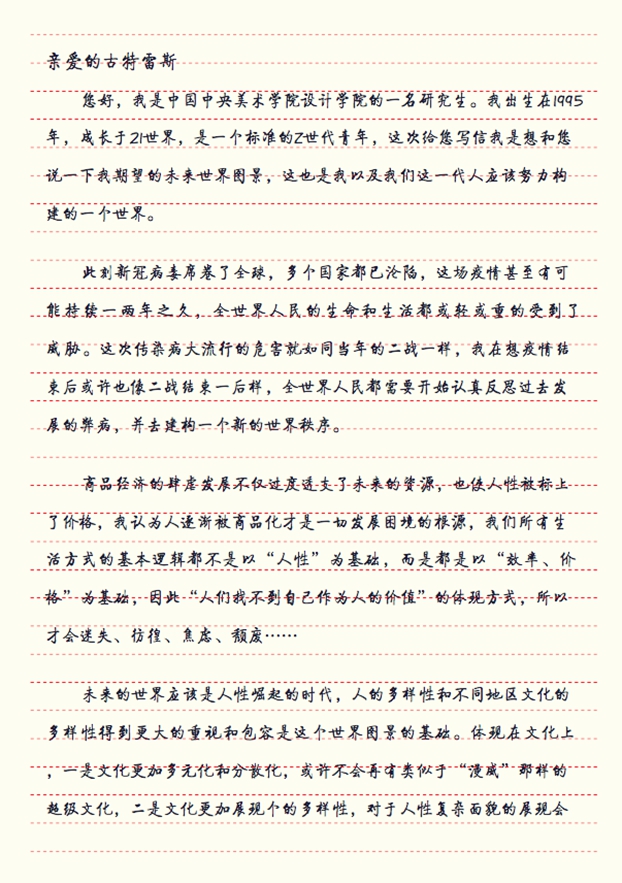 亲爱的古特雷斯
您好，我是中国中央美术学院设计学院的一名研究生。我出生在1995
年，成长于21世界，是一个标准的Z世代青年，这次给您写信我是想和您
说一下我期望的未来世界图景，这也是我以及我们这一代人应该努力构
建的一个世界。
此刻新冠病毒席卷了全球，多个国家都已沦陷，这场疫情甚至有可
能持续一两年之久，全世界人民的生命和生活都或轻或重的受到了
威胁。这次传染病大流行的危害就如同当年的二战一样，我在想疫情结
束后或许也像二战结束一后样，全世界人民都需要开始认真反思过去发
展的弊病，并去建构一个新的世界秩序。
商品经济的肆虐发展不仅过度透支了未来的资源，也使人性被标上
了价格，我认为人逐渐被商品化才是一切发展困境的根源，我们所有生
活方式的基本逻辑都不是以“人性”为基础，而是都是以“效率、价
格”为基础，因此“人们找不到自己作为人的价值”的体现方式，所以
才会迷失、彷徨、焦虑、颓废……
未来的世界应该是人性崛起的时代，人的多样性和不同地区文化的
多样性得到更大的重视和包容是这个世界图景的基础。体现在文化上
，一是文化更加多元化和分散化，或许不会再有类似于“漫威”那样的
超级文化，二是文化更加展现个的多样性，对于人性复杂面貌的展现会